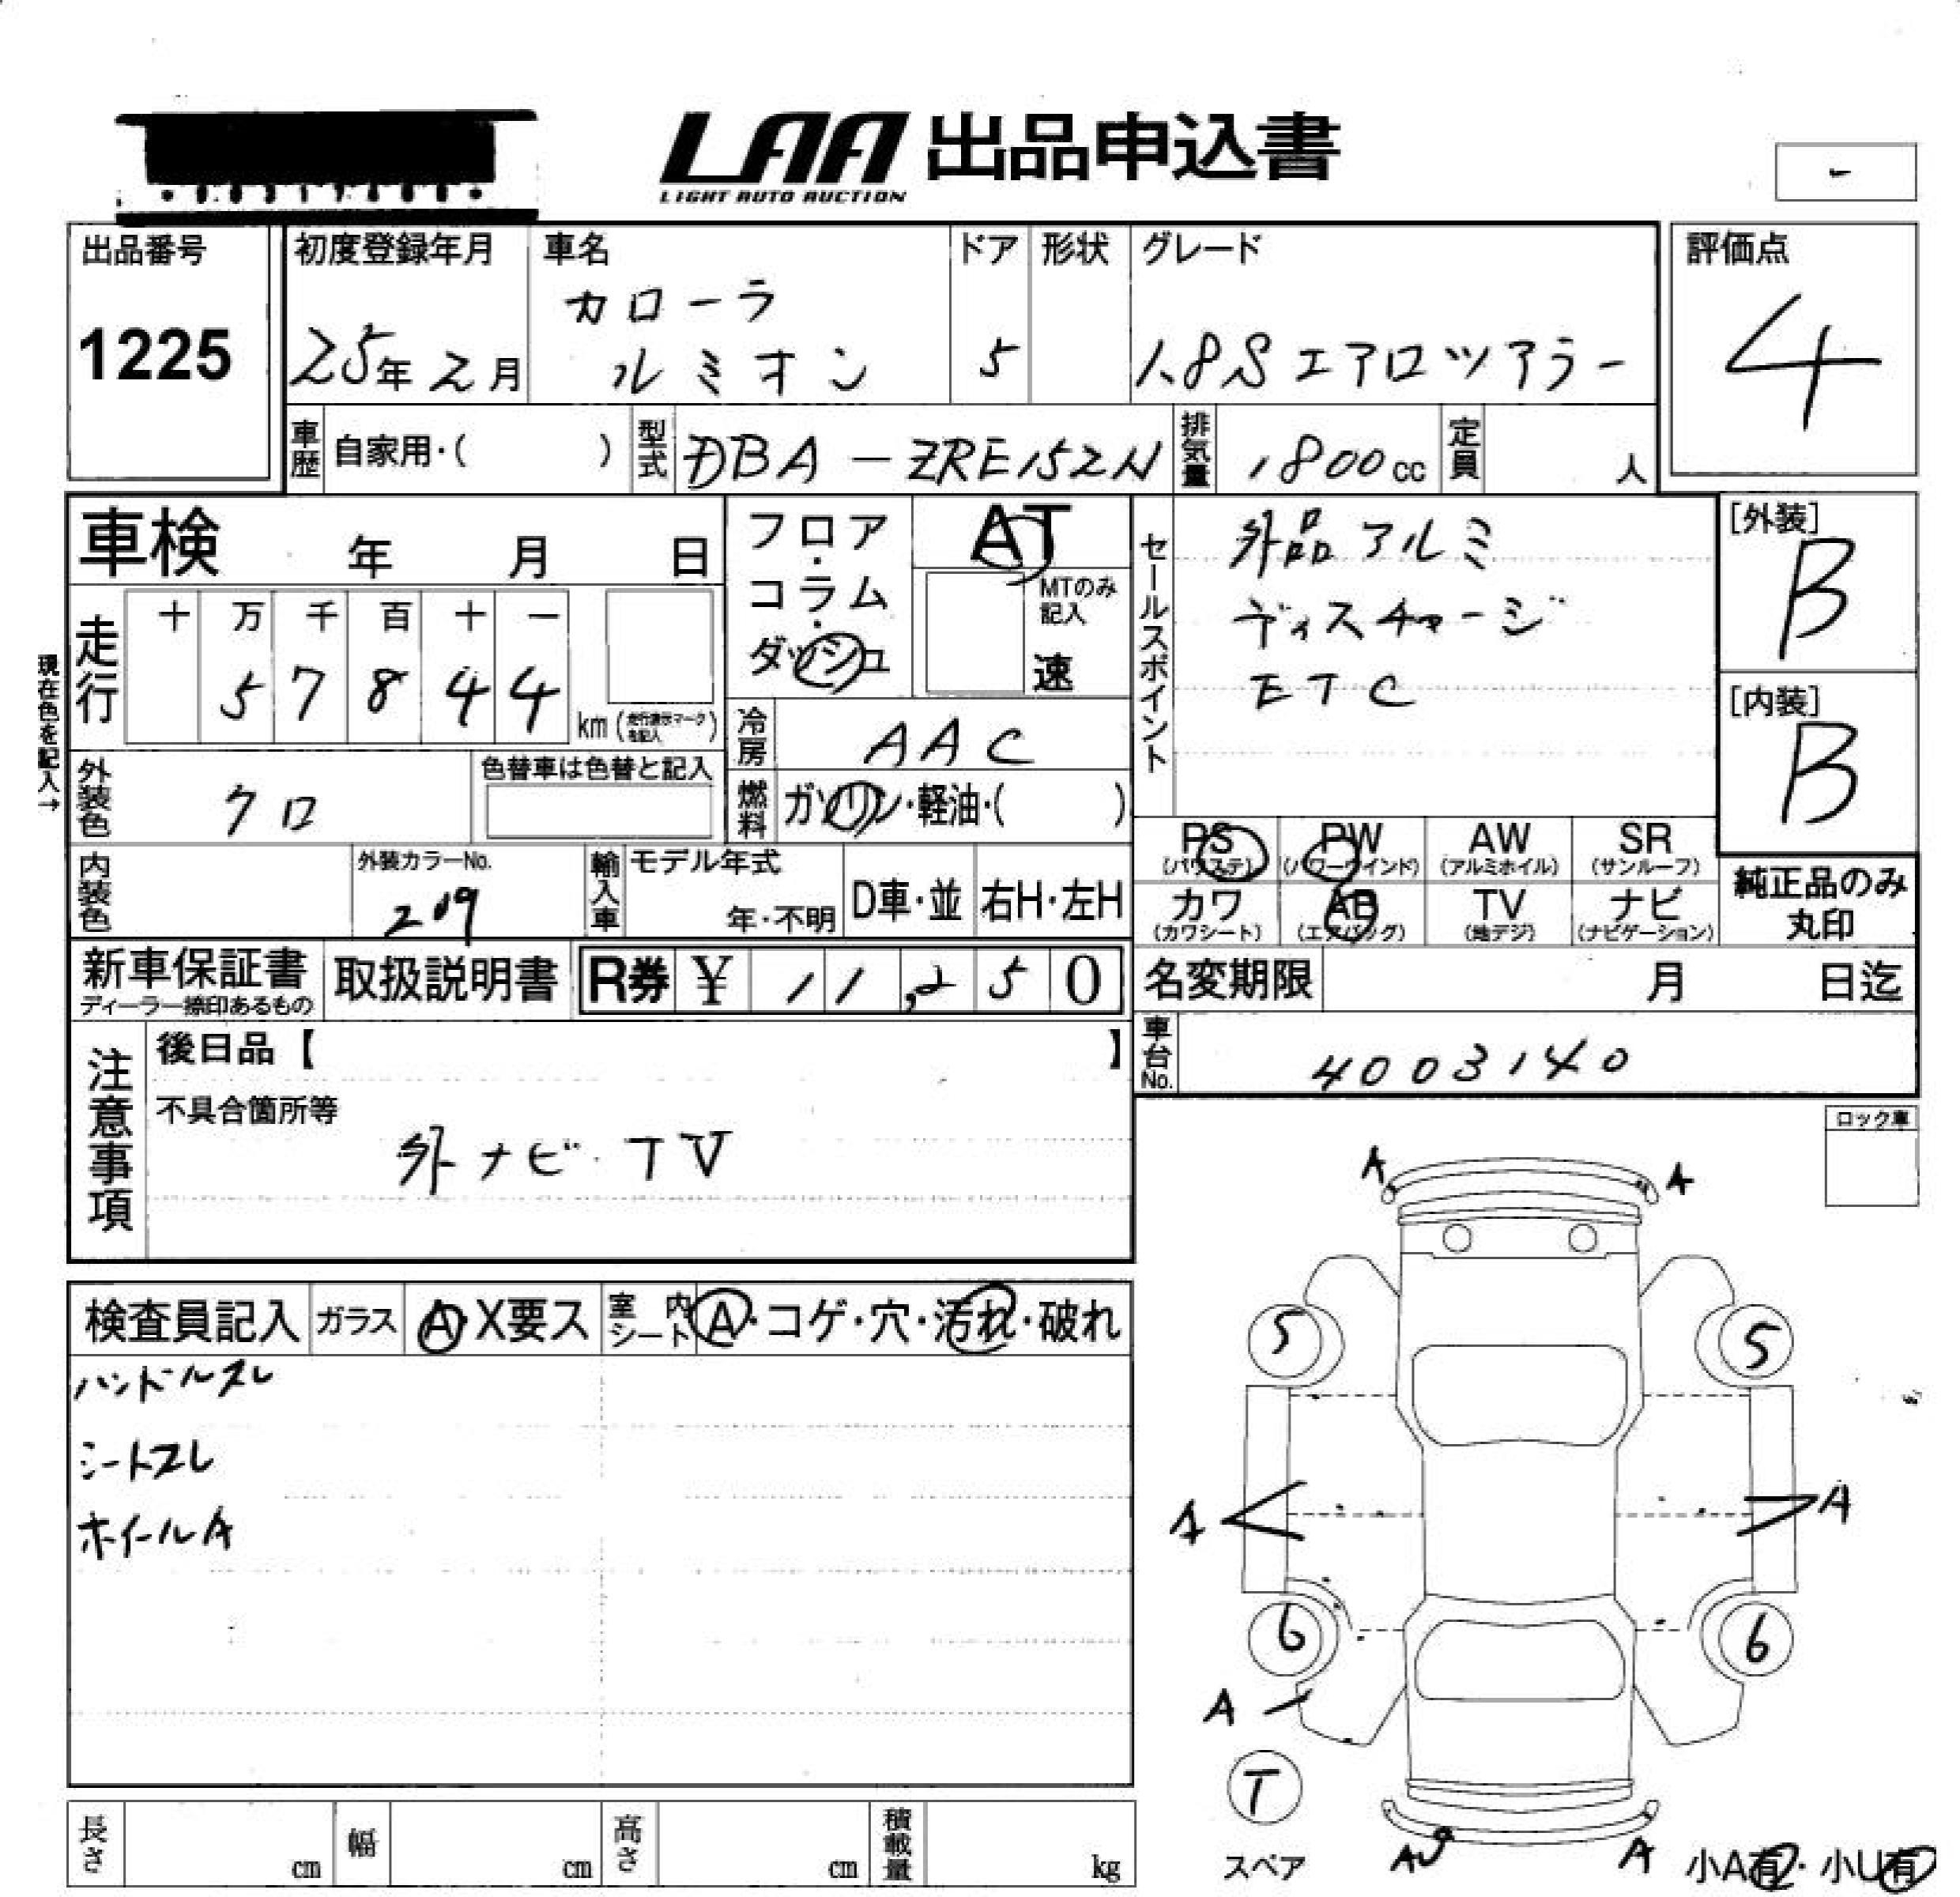 LAA 出品申込書
LIGHT AUTO AUCTION
-
出品番号
1225
初度登録年月
25年2月
車名
カローラ
ルミオン
ドア
5
形状
グレード
1.8S エアロツアラー
評価点
4
車歴 自家用・( )
型式 DBA-ZRE152N
排気量 1800cc
定員 人
車検 年 月 日
フロア・コラム・ダッシュ
AT
MTのみ記入
速
セールスポイント
外品アルミ
ディスチャージ
ETC
[外装]
B
[内装]
B
現在色を記入→
走行
十 万 千 百 十 一
5 7 8 4 4
km (走行表示マークを記入)
冷房 AAC
外装色 クロ
色替車は色替と記入
燃料 ガソリン・軽油・( )
PS (パワステ)
PW (パワーウインド)
AW (アルミホイル)
SR (サンルーフ)
カワ (カワシート)
AB (エアバッグ)
TV (地デジ)
ナビ (ナビゲーション)
純正品のみ
丸印
内装色
外装カラーNo.
209
輸入車
モデル年式
年・不明
D車・並
右H・左H
新車保証書
ディーラー捺印あるもの
取扱説明書
R券 ¥ 11,250
名変期限 月 日迄
車台No. 4003140
注意事項
後日品【 】
不具合箇所等
外ナビ・TV
ロック車
A A
検査員記入
ガラス A・X要ス
室内シート A・コゲ・穴・汚れ・破れ
ハンドルスレ
シートスレ
ホイールA
5 5
A A
6 6
A
T
スペア
AU A
小A有・小U有
長さ cm
幅 cm
高さ cm
積載量 kg